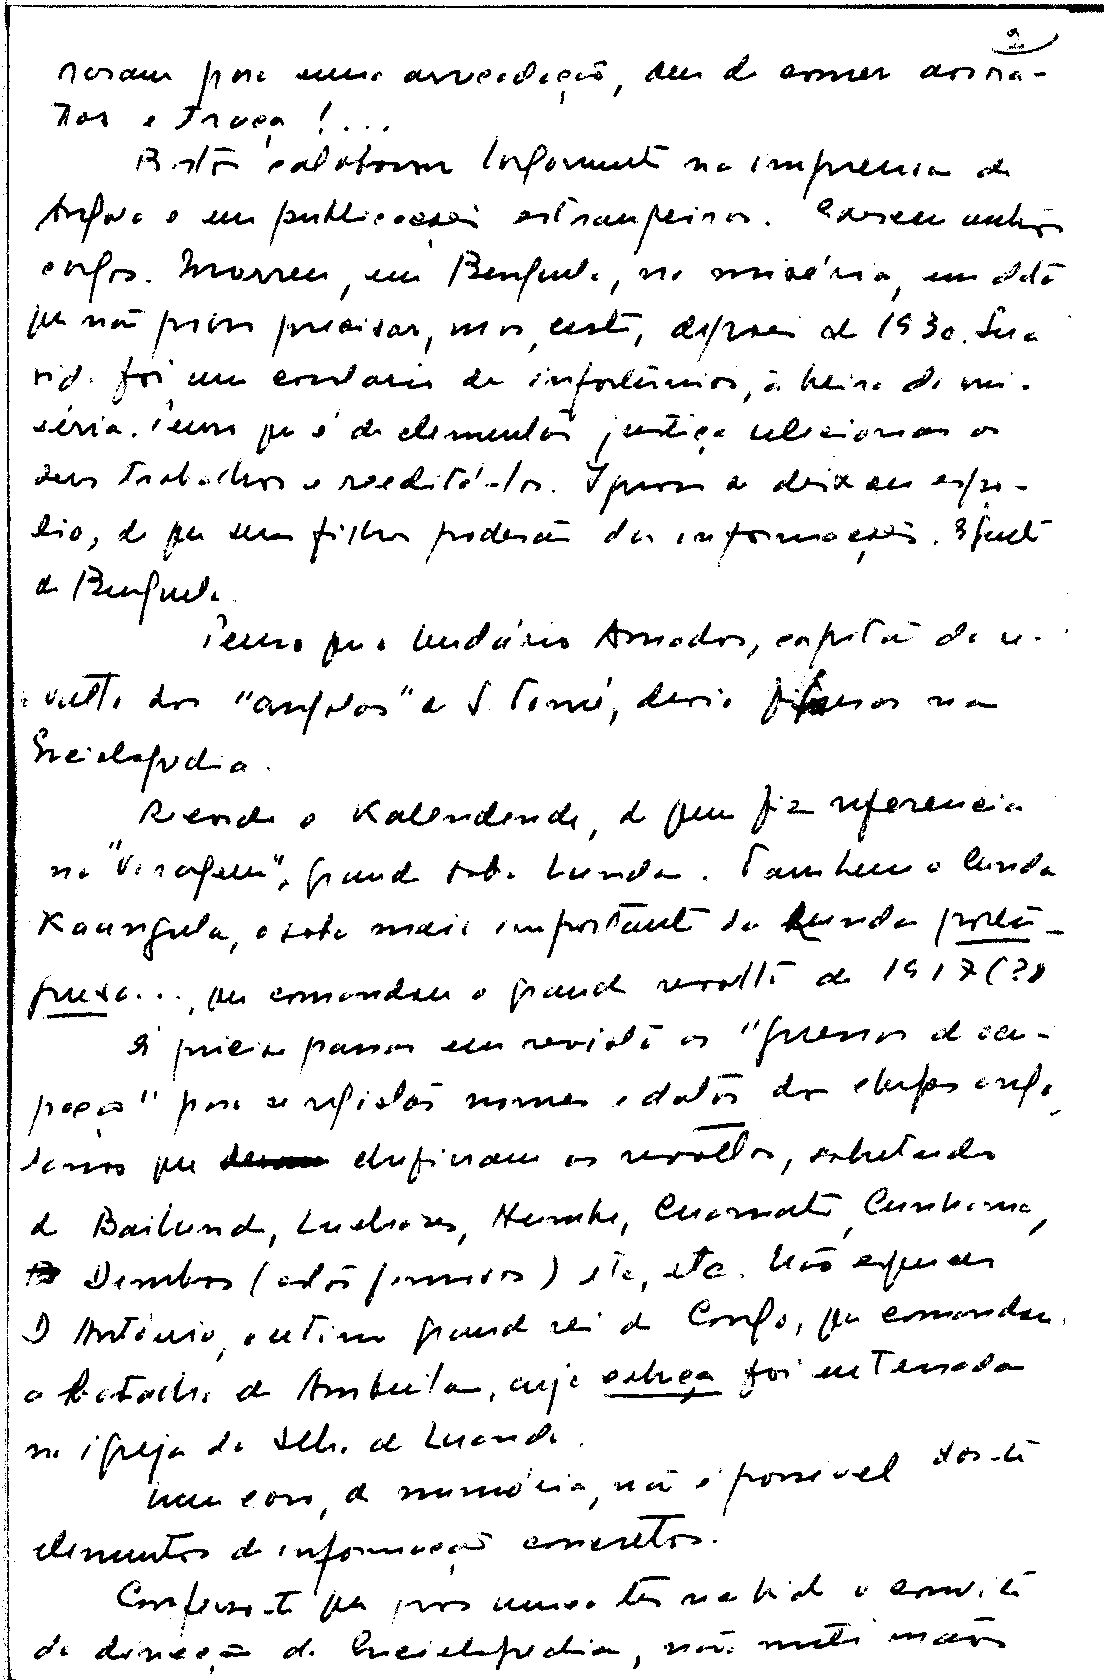 2
para uma arrecadação, deu de comer aos ra-
tos e traça!...
colaborou largamente na imprensa de
Angola e em publicações estrangeiras. Exerceu muitos
cargos. Morreu, em Benguela, na miséria, em data
que não posso precisar, mas, certo, depois de 1930. Sua
vida foi um de infortúnios, à beira da mi-
séria. Penso que é de elementar justiça seleccionar os
seus trabalhos e reeditá-los. Ignoro se deixou espó-
lio, de que seus filhos poderão dar informações. É gente
de Benguela.
Penso que Amador, capitão da re-
volta dos "angolas" de S. Tomé, devia figurar na
Enciclopédia.
Recordo o Kalendende, de quem fiz referência
na "Viragem", grande soba Lunda. Também o Lunda
Kaungula, o soba mais importante da Lunda portu-
guesa..., que comandou a grande revolta de 1917(?)
É preciso passar em revista as "guerras de ocu-
pação" para se registar nomes e datas dos chefes ango-
lanos que chefiaram as revoltas, sobretudo
do Bailundo, Luchazes, Humbe, Cuamato, Cunhama,
Dembos ( ) etc, etc. Não esquecer
D António, o último grande rei do Congo, que comandou
a batalha de Ambuíla, cuja cabeça foi enterrada
na igreja da Ilha de Luanda.
Num caso, de memória, não é possível dar-te
elementos de informação concretos.
Confesso-te que, por nunca ter recebido o convite
da direcção da Enciclopédia, não meti mãos